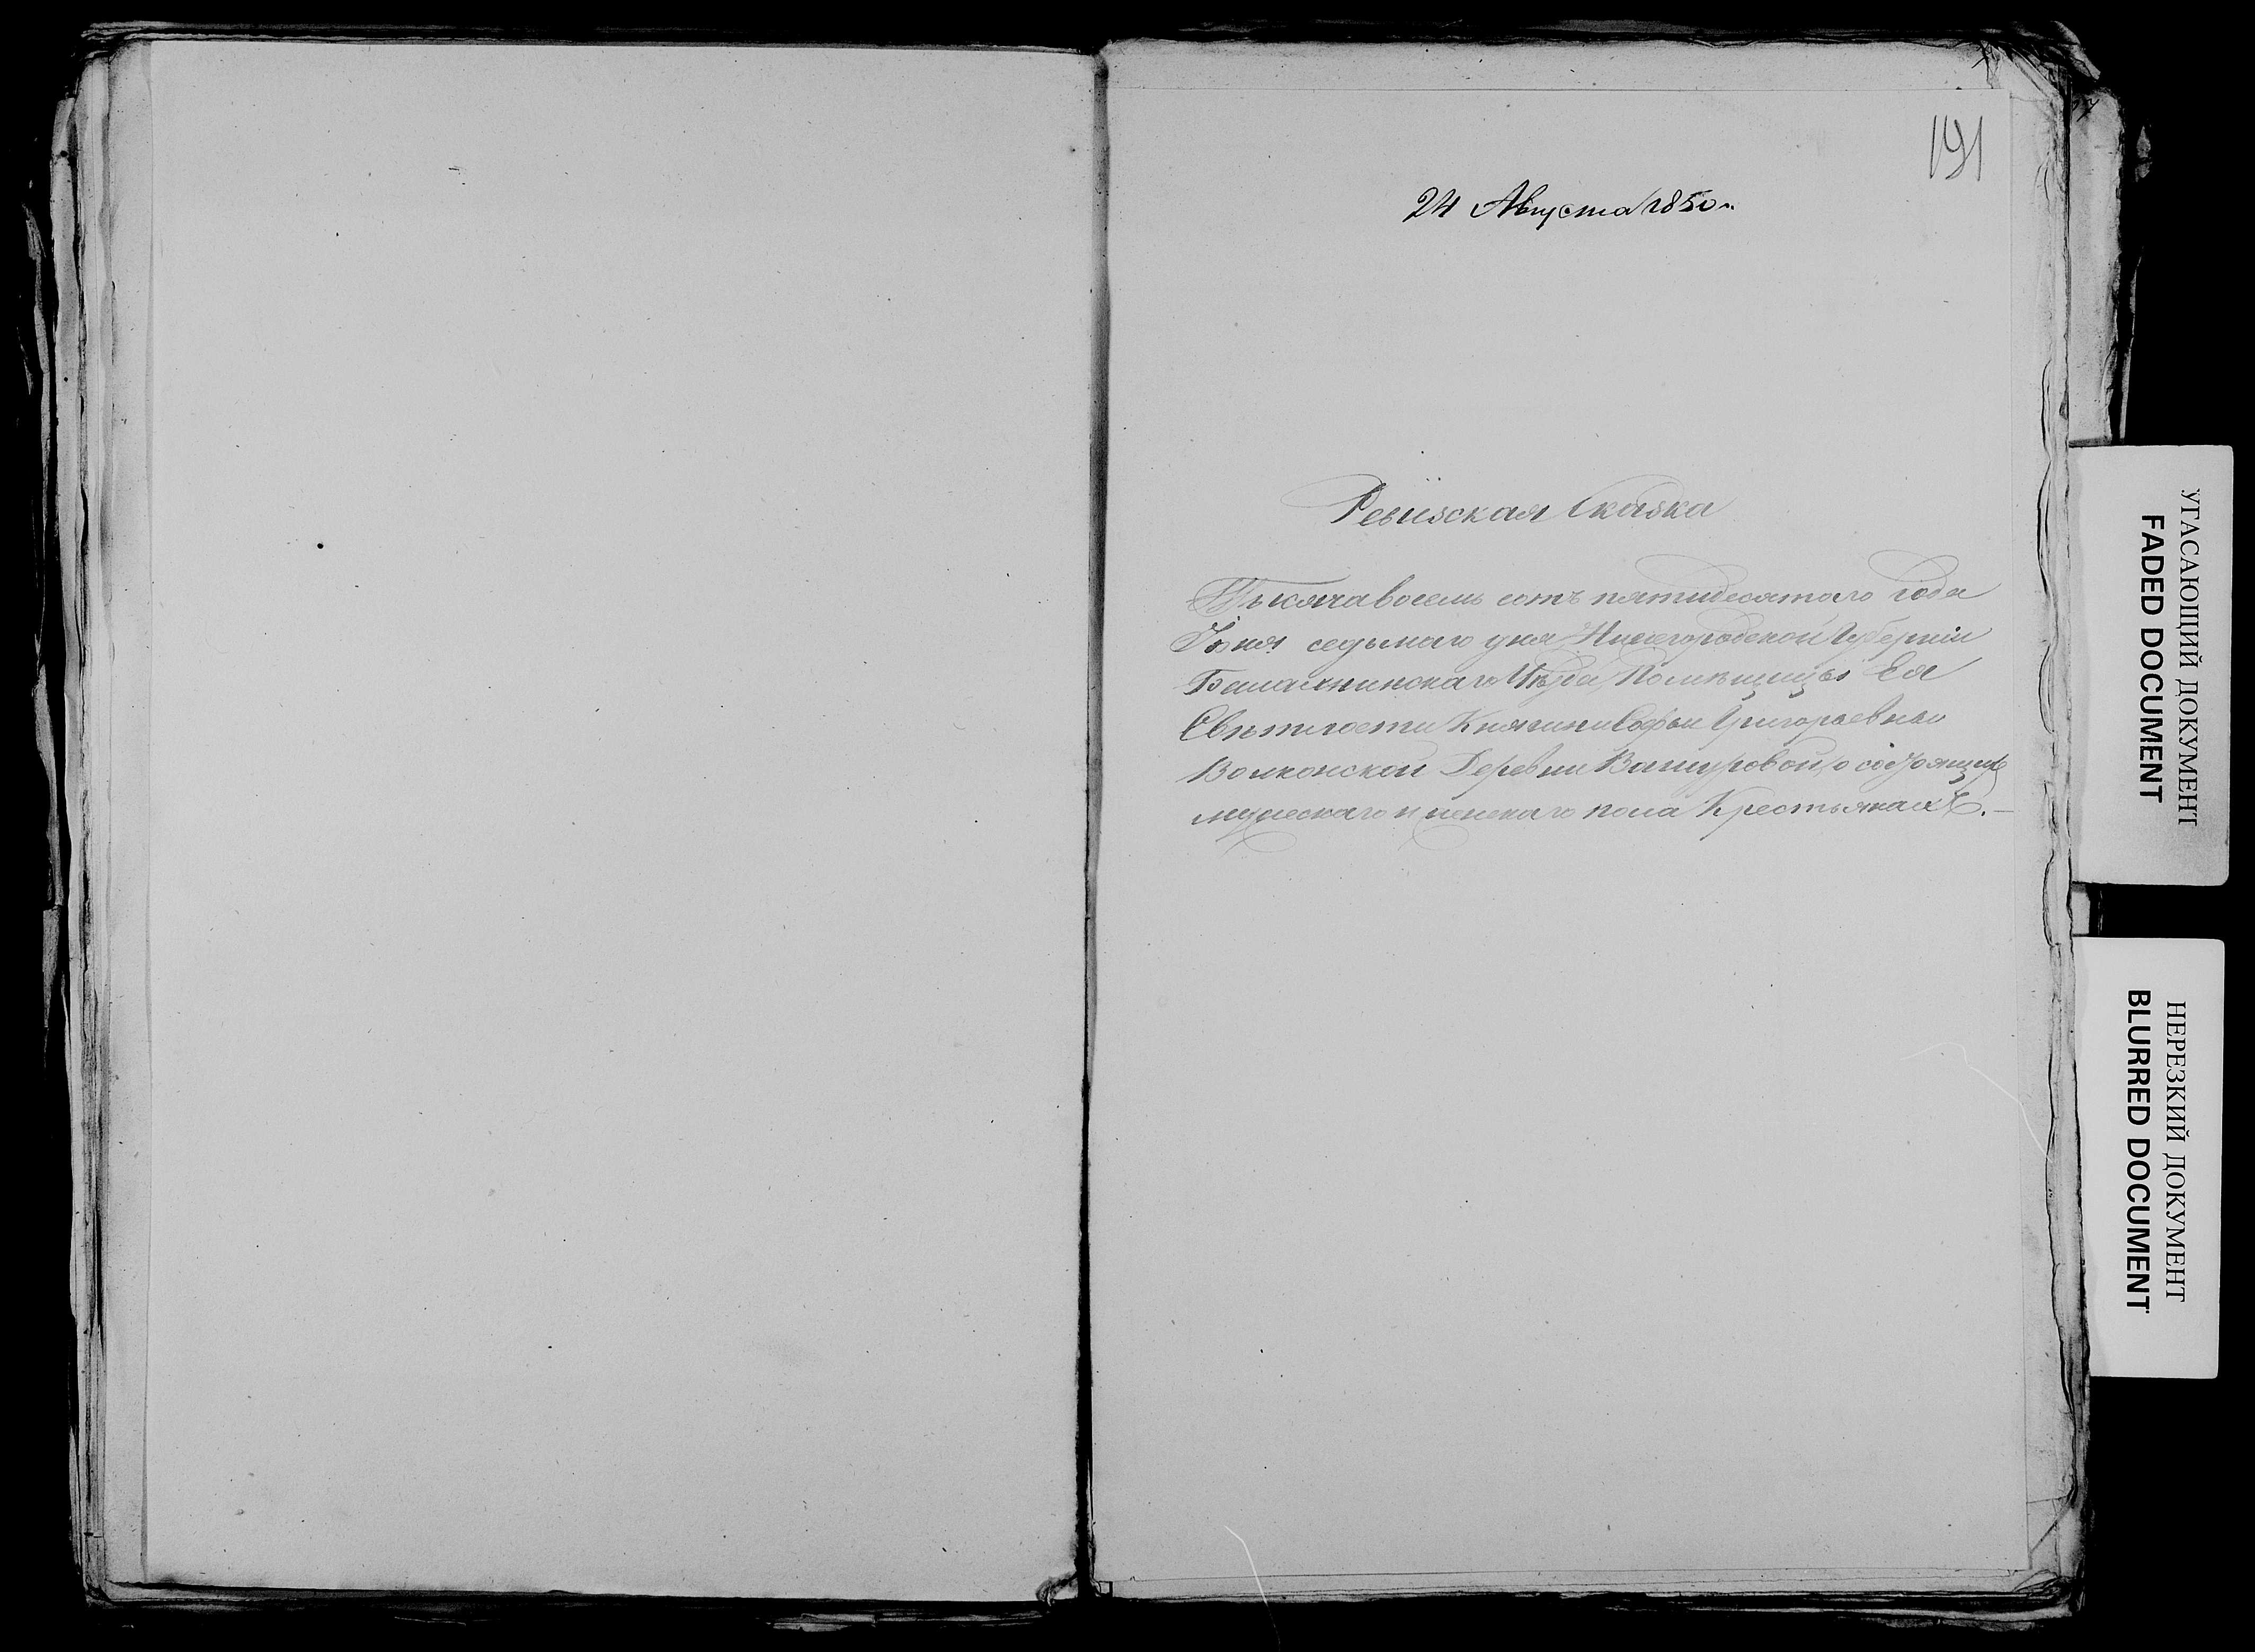 191
24 Августа 1850 г.
Ревизская Сказка
Тысяча восемь сотъ пятидесятого Года
Іюня седьмаго дня Нижегородской Губерніи
Балахнинскаго Уѣзда Помѣщицы Ея
Свѣтлости Княгини Софьи Григорьевны
Волконской Деревни Вашуровой, о состоящихъ
мужескаго и женскаго пола Крестьянахъ.
УГАСАЮЩИЙ ДОКУМЕНТ
FADED DOCUMENT
НЕРЕЗКИЙ ДОКУМЕНТ
BLURRED DOCUMENT